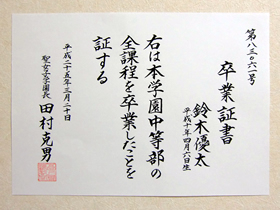 第八三〇六一号
卒業証書
鈴木優太
平成十年四月六日生
右は本学園中等部の
全課程を卒業したことを
証する
平成二十五年三月二十日
聖安学園長 田村克男